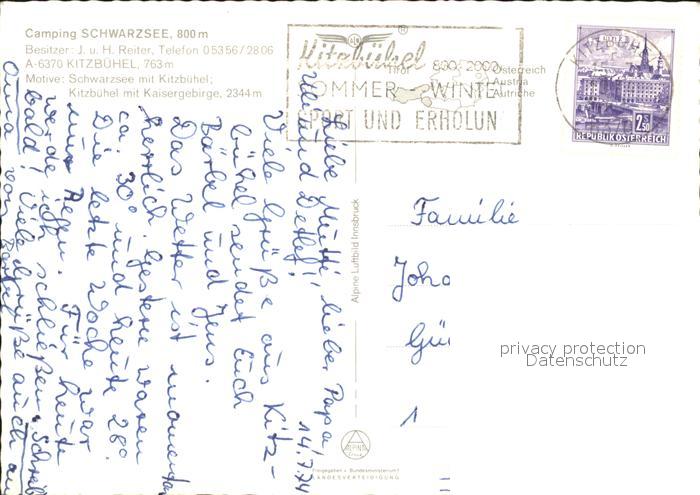 Camping SCHWARZSEE, 800 m
Besitzer: J. u. H. Reiter, Telefon 0 53 56 / 28 06
A-6370 KITZBÜHEL, 763 m
Motive: Schwarzsee mit Kitzbühel;
Kitzbühel mit Kaisergebirge, 2344 m
®
Kitzbühel
Tirol 800-2000 Österreich
Austria
Autriche
OMMER WINTE
PORT UND ERHOLUN
KITZBÜH
2.50
S
REPUBLIK ÖSTERREICH
14.7.74
Liebe Mutti, lieber Papa
und Detlef!
Viele Grüße aus Kitz-
bühel sendet Euch
Bärbel und Jens.
Das Wetter ist momentan
herrlich. Gestern waren
ca. 30° und heute 28°.
Die letzte Woche war
nur Regen. Für heute
werde ich schließen. Schreib
bald! Viele Grüße auch an
Oma von
Alpine Luftbild Innsbruck
Familie
Joh
Gü
1
ALPINE
Freigegeben v. Bundesministerium f.
LANDESVERTEIDIGUNG
privacy protection
Datenschutz